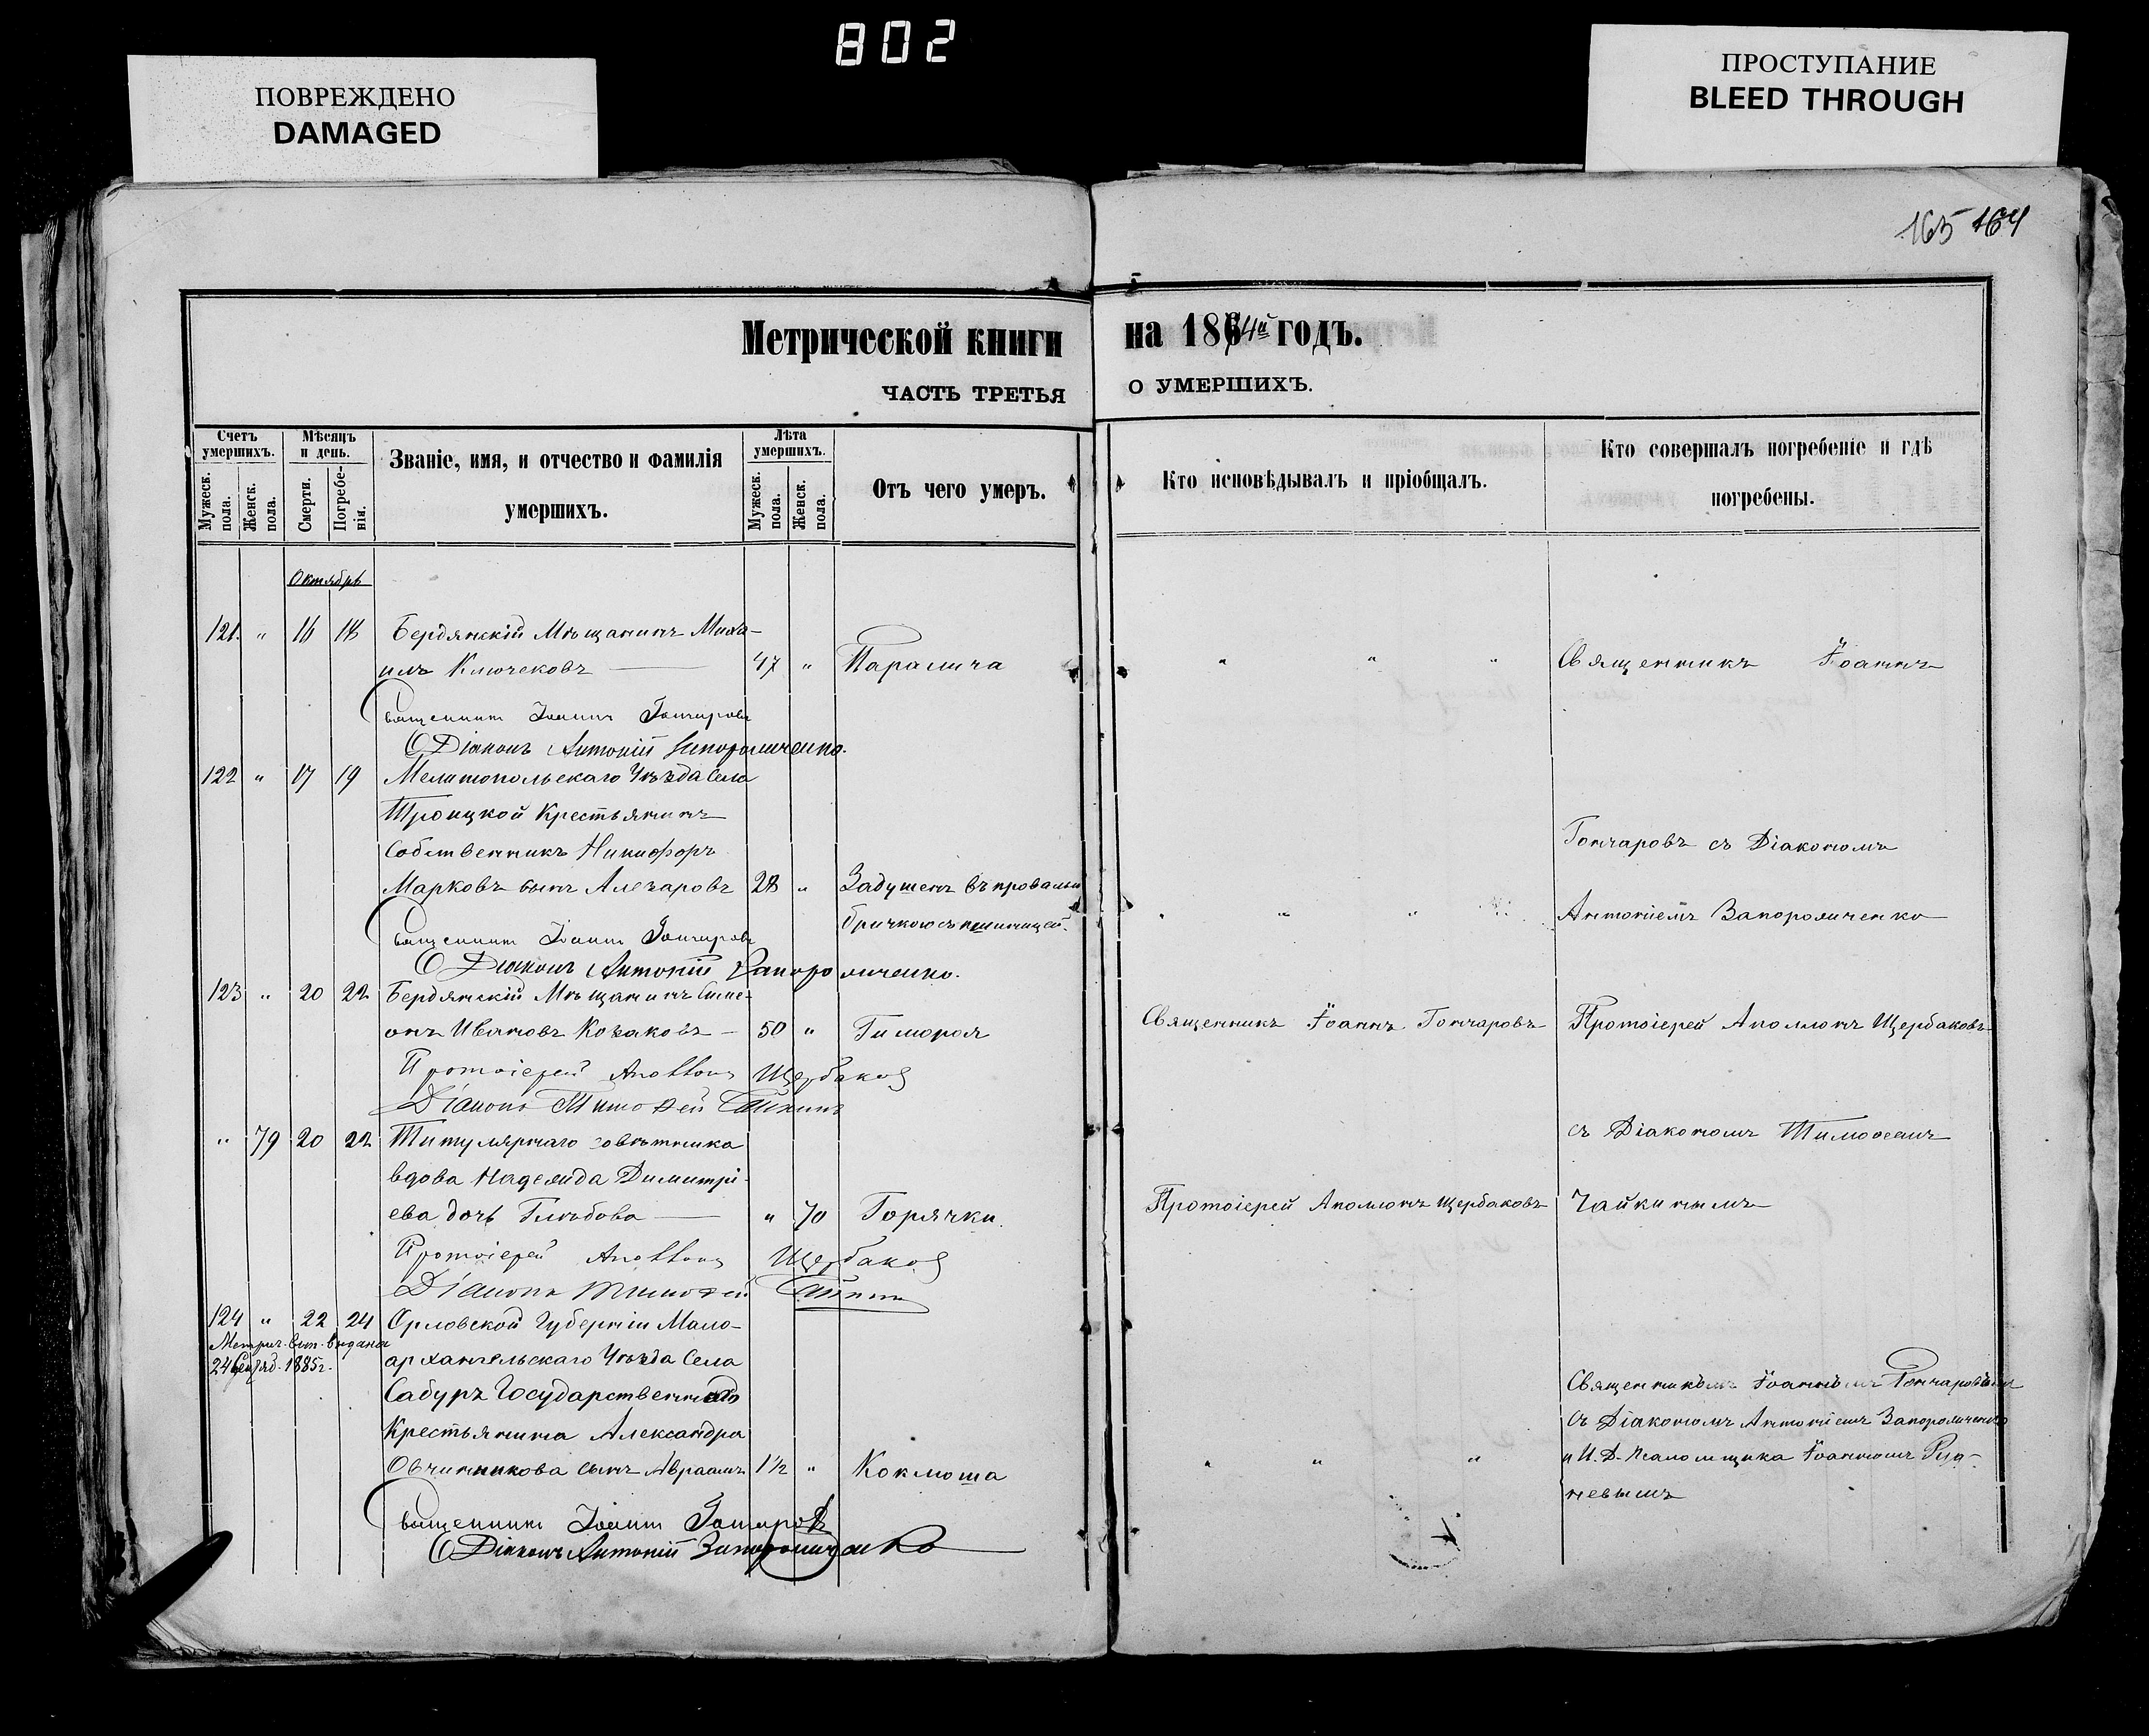 802
ПОВРЕЖДЕНО
DAMAGED
ПРОСТУПАНИЕ
BLEED THROUGH
165 164
Метрической книги на 1874й годъ.
ЧАСТЬ ТРЕТЬЯ О УМЕРШИХЪ.
Счетъ умершихъ.
Мужеск. пола.
Женск. пола.
Мѣсяцъ и день.
Смерти.
Погребенія.
Званіе, имя, и отчество и фамилія
умершихъ.
Лѣта умершихъ.
Мужеск. пола.
Женск. пола.
Отъ чего умеръ.
Кто исповѣдывалъ и пріобщалъ.
Кто совершалъ погребеніе и гдѣ
погребены.
Октябрь
121. " 16 18 Бердянскій Мѣщанинъ Миха-
илъ Ключековъ 47 " Паралича " " " Священникъ Іоаннъ
Священникъ Іоаннъ Гончаровъ
Діаконъ Антоній Запорожченко.
122 " 17 19 Мелитопольскаго Уѣзда Села
Троицкой Крестьянинъ
Собственникъ Никифоръ Гончаровъ съ Діакономъ
Марковъ сынъ 28 " Задушенъ въ
бричкою съ пшеницей. " " " Антоніемъ Запорожченко
Священникъ Іоаннъ Гончаровъ
Діаконъ Антоній Запорожченко.
123 " 20 22 Бердянскій Мѣщанинъ Симе-
онъ Ивановъ Козаковъ 50 " Священникъ Іоаннъ Гончаровъ Протоіерей Аполлонъ Щербаковъ
Протоіерей Аполлонъ Щербаковъ
Діаконъ Тимоѳей Чайкинъ
" 79 20 22 Титулярнаго совѣтника съ Діакономъ Тимоѳеемъ
вдова Надежда Димитрі-
ева дочь Глѣбова " 70 Горячки. Протоіерей Аполлонъ Щербаковъ Чайкинымъ
Протоіерей Аполлонъ Щербаковъ
Діаконъ Тимоѳей Чайкинъ
124 " 22 24 Орловской Губерніи Мало-
Метрич. вып. выдана
24 1885г. архангельскаго Уѣзда Села
Сабуръ Государственнаго Священникомъ Іоанномъ Гончаровымъ
Крестьянина Александра съ Діакономъ Антоніемъ Запорожченко
Овчинникова сынъ Авраамъ 1½ " Коклюша " " " и И. Д. Псаломщика Іоанномъ
невымъ
Священникъ Іоаннъ Гончаровъ
Діаконъ Антоній Запорожченко